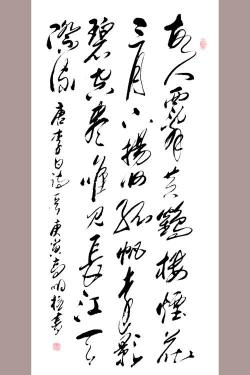 故人西辭黃鶴樓煙花
三月下揚州孤帆遠影
碧空盡唯見長江天
際流 唐李白詩 庚寅 書